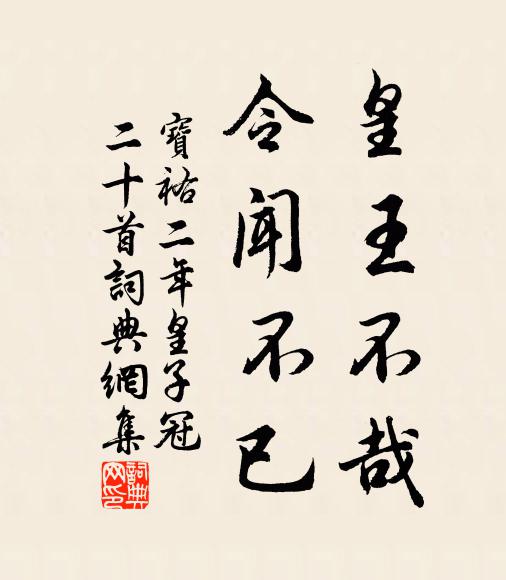 皇王不哉
令聞不已
寶祐二年皇子冠
二十首詞典網集
詞典
网印